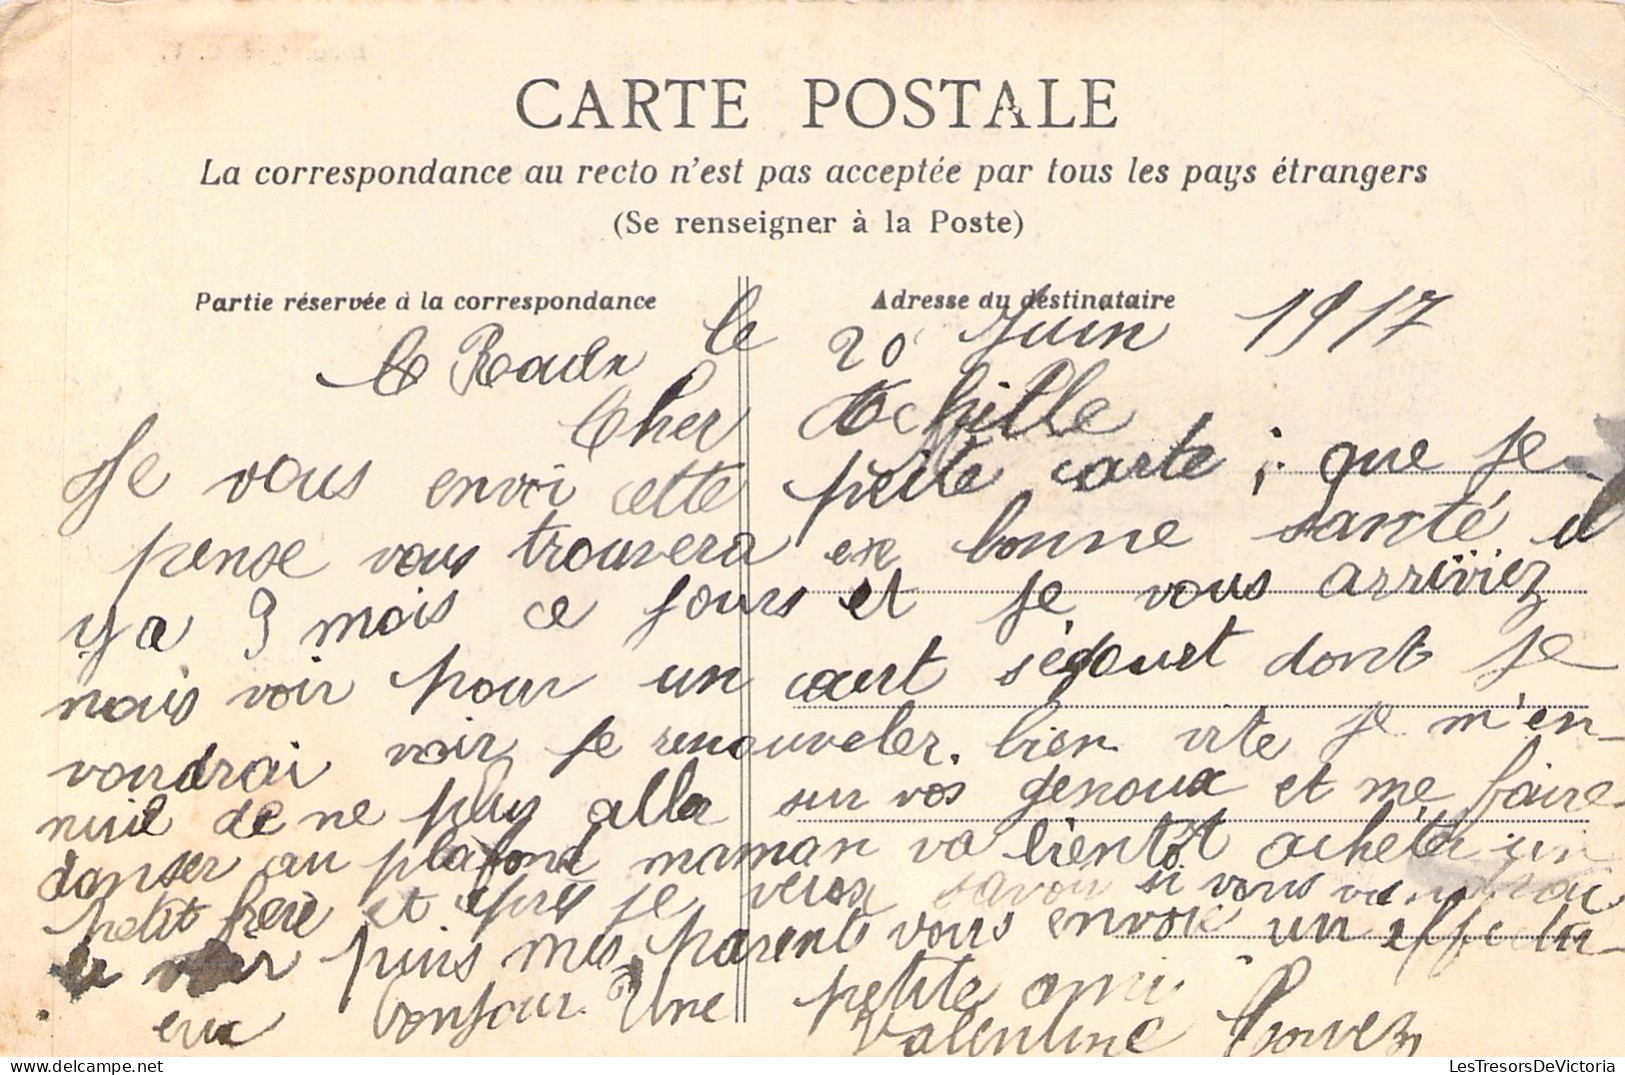 CARTE POSTALE
La correspondance au recto n'est pas acceptée par tous les pays étrangers
(Se renseigner à la Poste)
Partie réservée à la correspondance
Adresse du destinataire
le 20 Juin 1917
Cher Achille
Je vous envoi cette petite carte ; que je
pense vous trouvera en bonne santé il
y a 9 mois ce jours et je vous arriviez
nous voir pour un court séjouet dont je
voudrai voir se renouveler bien vite je m'en-
nuie de ne plus aller sur vos genoux et me faire
danser au plafond maman va bientôt acheter un
petit frère et après je veux savoir si vous
le voir puis mes parents vous envoie un effectu-
eux bonjour Une petite ami
Valentine
LesTresorsDeVictoria